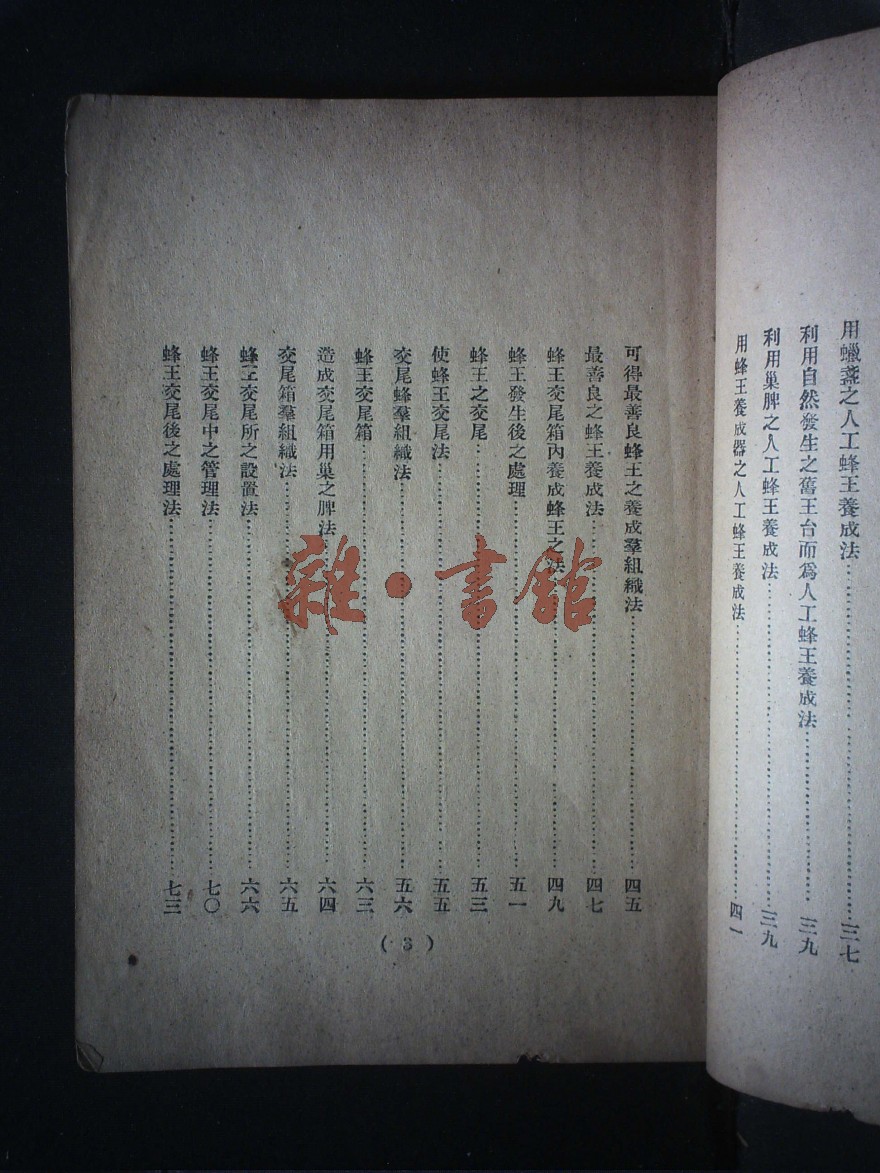 用蠟盞之人工蜂王養成法……三七
利用自然發生之舊王台而爲人工蜂王養成法……三九
利用巢脾之人工蜂王養成法……三九
用蜂王養成器之人工蜂王養成法……四一
可得最善良蜂王之養成羣組織法……四五
最善良之蜂王養成法……四七
蜂王交尾箱內養成蜂王之法……四九
蜂王發生後之處理……五一
蜂王之交尾……五三
使蜂王交尾法……五五
交尾蜂羣組織法……五六
蜂王交尾箱……六三
造成交尾箱用巢之脾法……六四
交尾箱羣組織法……六五
蜂王交尾所之設置法……六六
蜂王交尾中之管理法……七〇
蜂王交尾後之處理法……七三
(3)
雜·書館